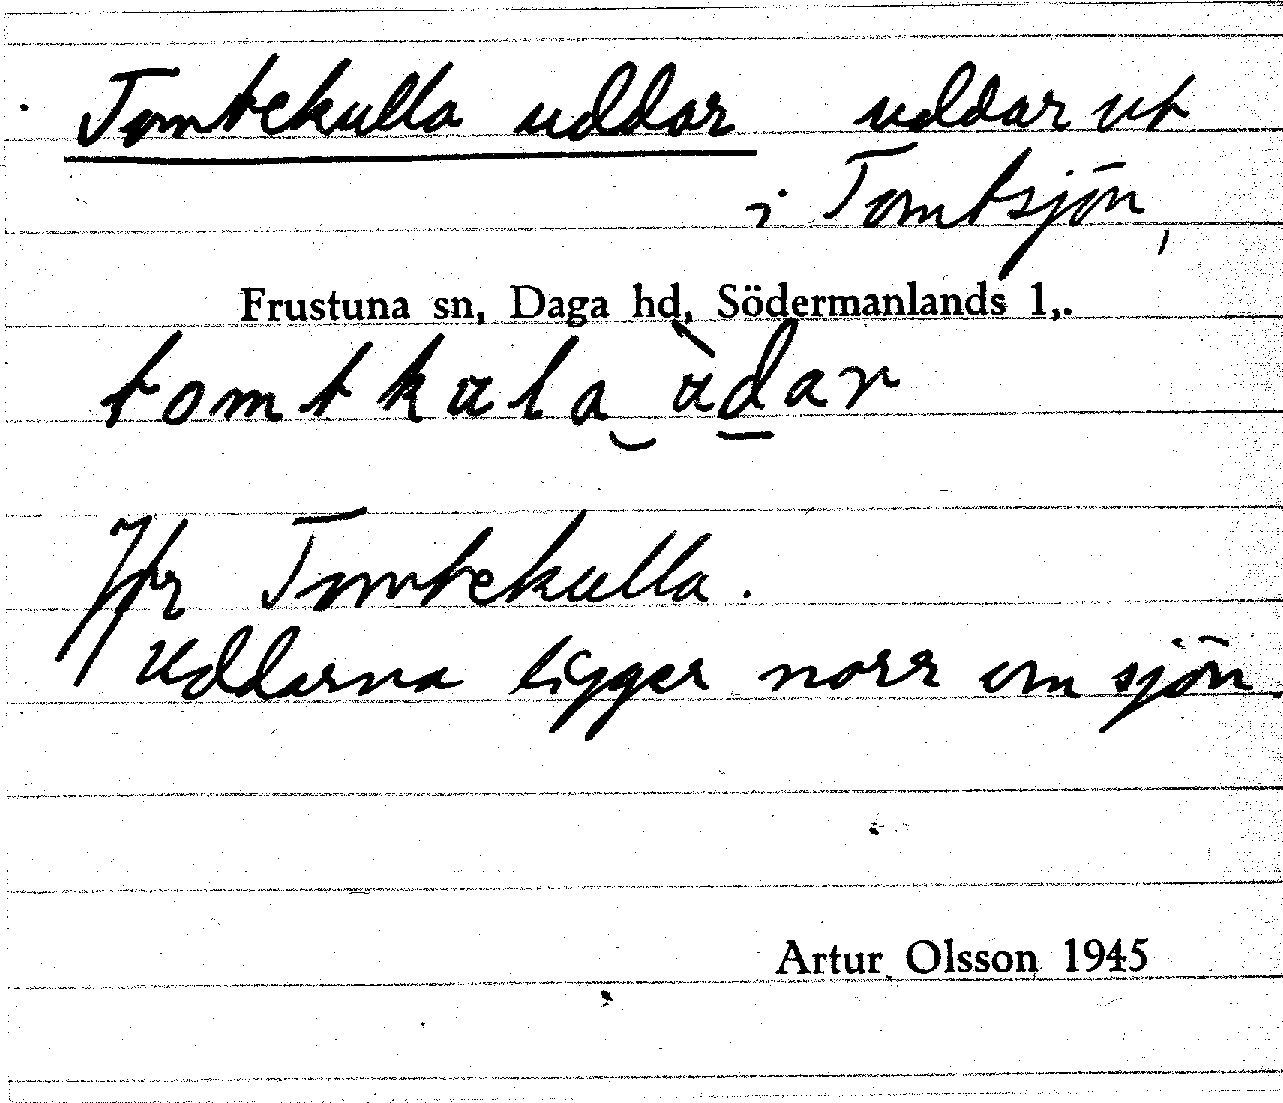 Tomtekulla uddar uddar ut
i Tomtsjön,
Frustuna sn, Daga hd, Södermanlands l,.
tomtkula ùdar
Jfr Tomtekulla.
Uddarna ligger norr om sjön.
Artur Olsson 1945